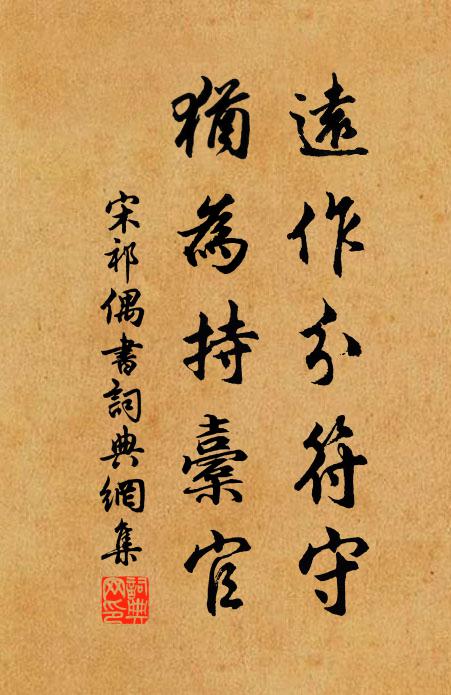 遠作分符守
猶為持橐官
宋祁偶書詞典網集
詞典网印